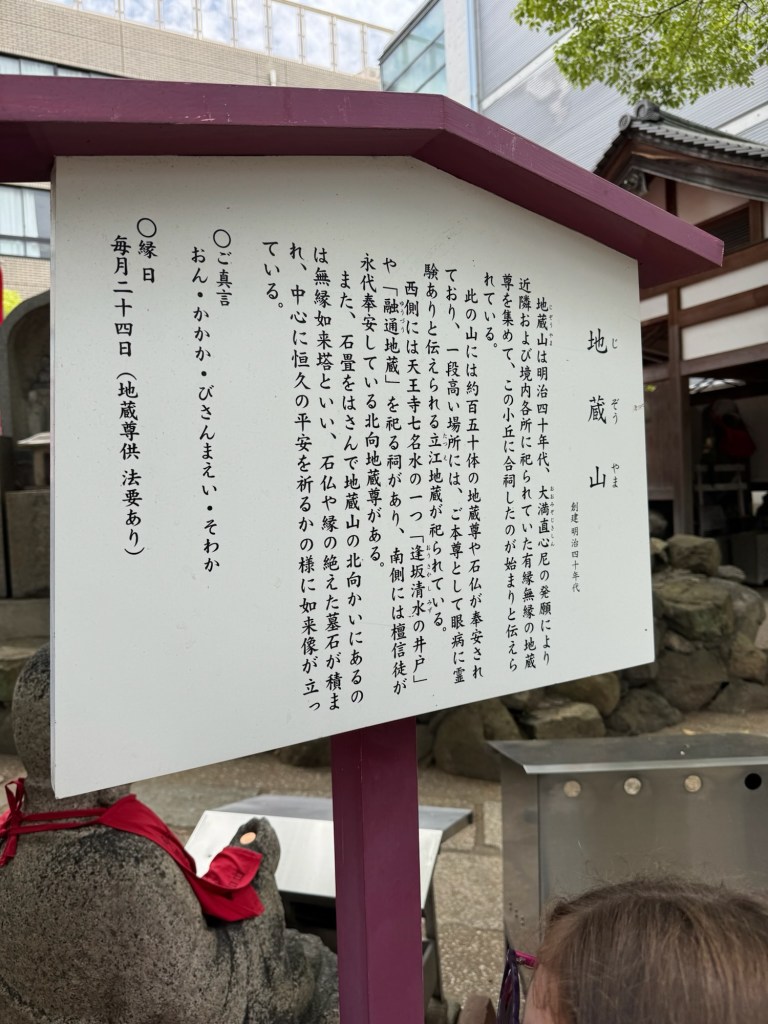 地蔵山
じぞうやま
創建明治四十年代
地蔵山は明治四十年代、大満直心尼の発願により
近隣および境内各所に祀られていた有縁無縁の地蔵
尊を集めて、この小丘に合祠したのが始まりと伝えら
れている。
此の山には約百五十体の地蔵尊や石仏が奉安され
ており、一段高い場所には、ご本尊として眼病に霊
験ありと伝えられる立江地蔵が祀られている。
西側には天王寺七名水の一つ「逢坂清水の井戸」
や「融通地蔵」を祀る祠があり、南側には檀信徒が
永代奉安している北向地蔵尊がある。
また、石畳をはさんで地蔵山の北向かいにあるの
は無縁如来塔といい、石仏や縁の絶えた墓石が積ま
れ、中心に恒久の平安を祈るかの様に如来像が立っ
ている。
〇ご真言
おん・かかか・びさんまえい・そわか
〇縁日
毎月二十四日（地蔵尊供 法要あり）